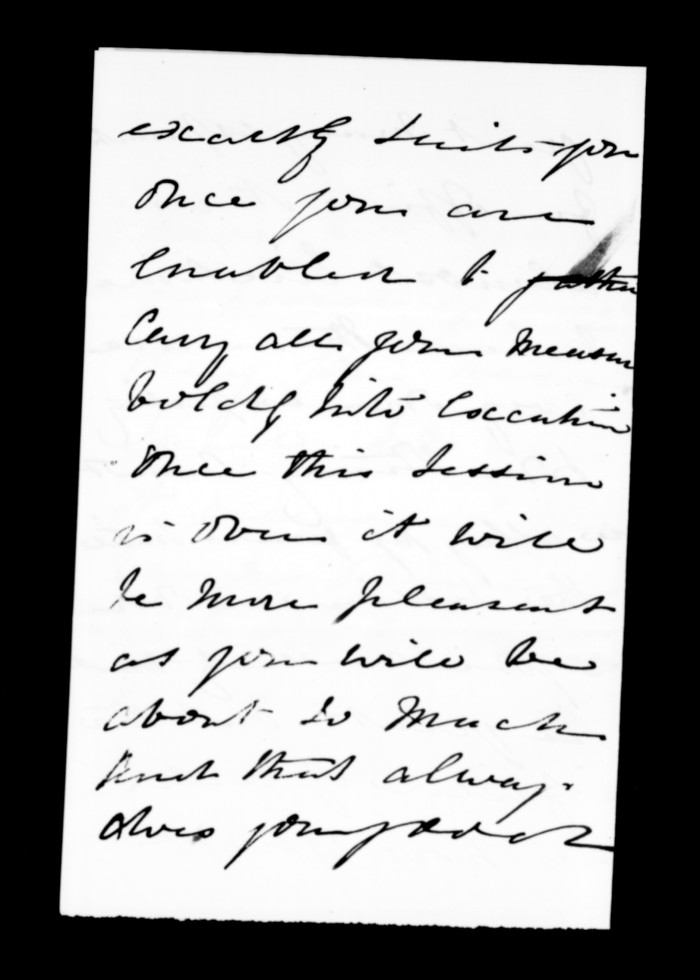 exactly suits you
once you are
enabled to
Carry all your Measures
boldly into Execution
Once this Session
is over it will
be More pleasant
as you will be
about so Much
And that always
does you good